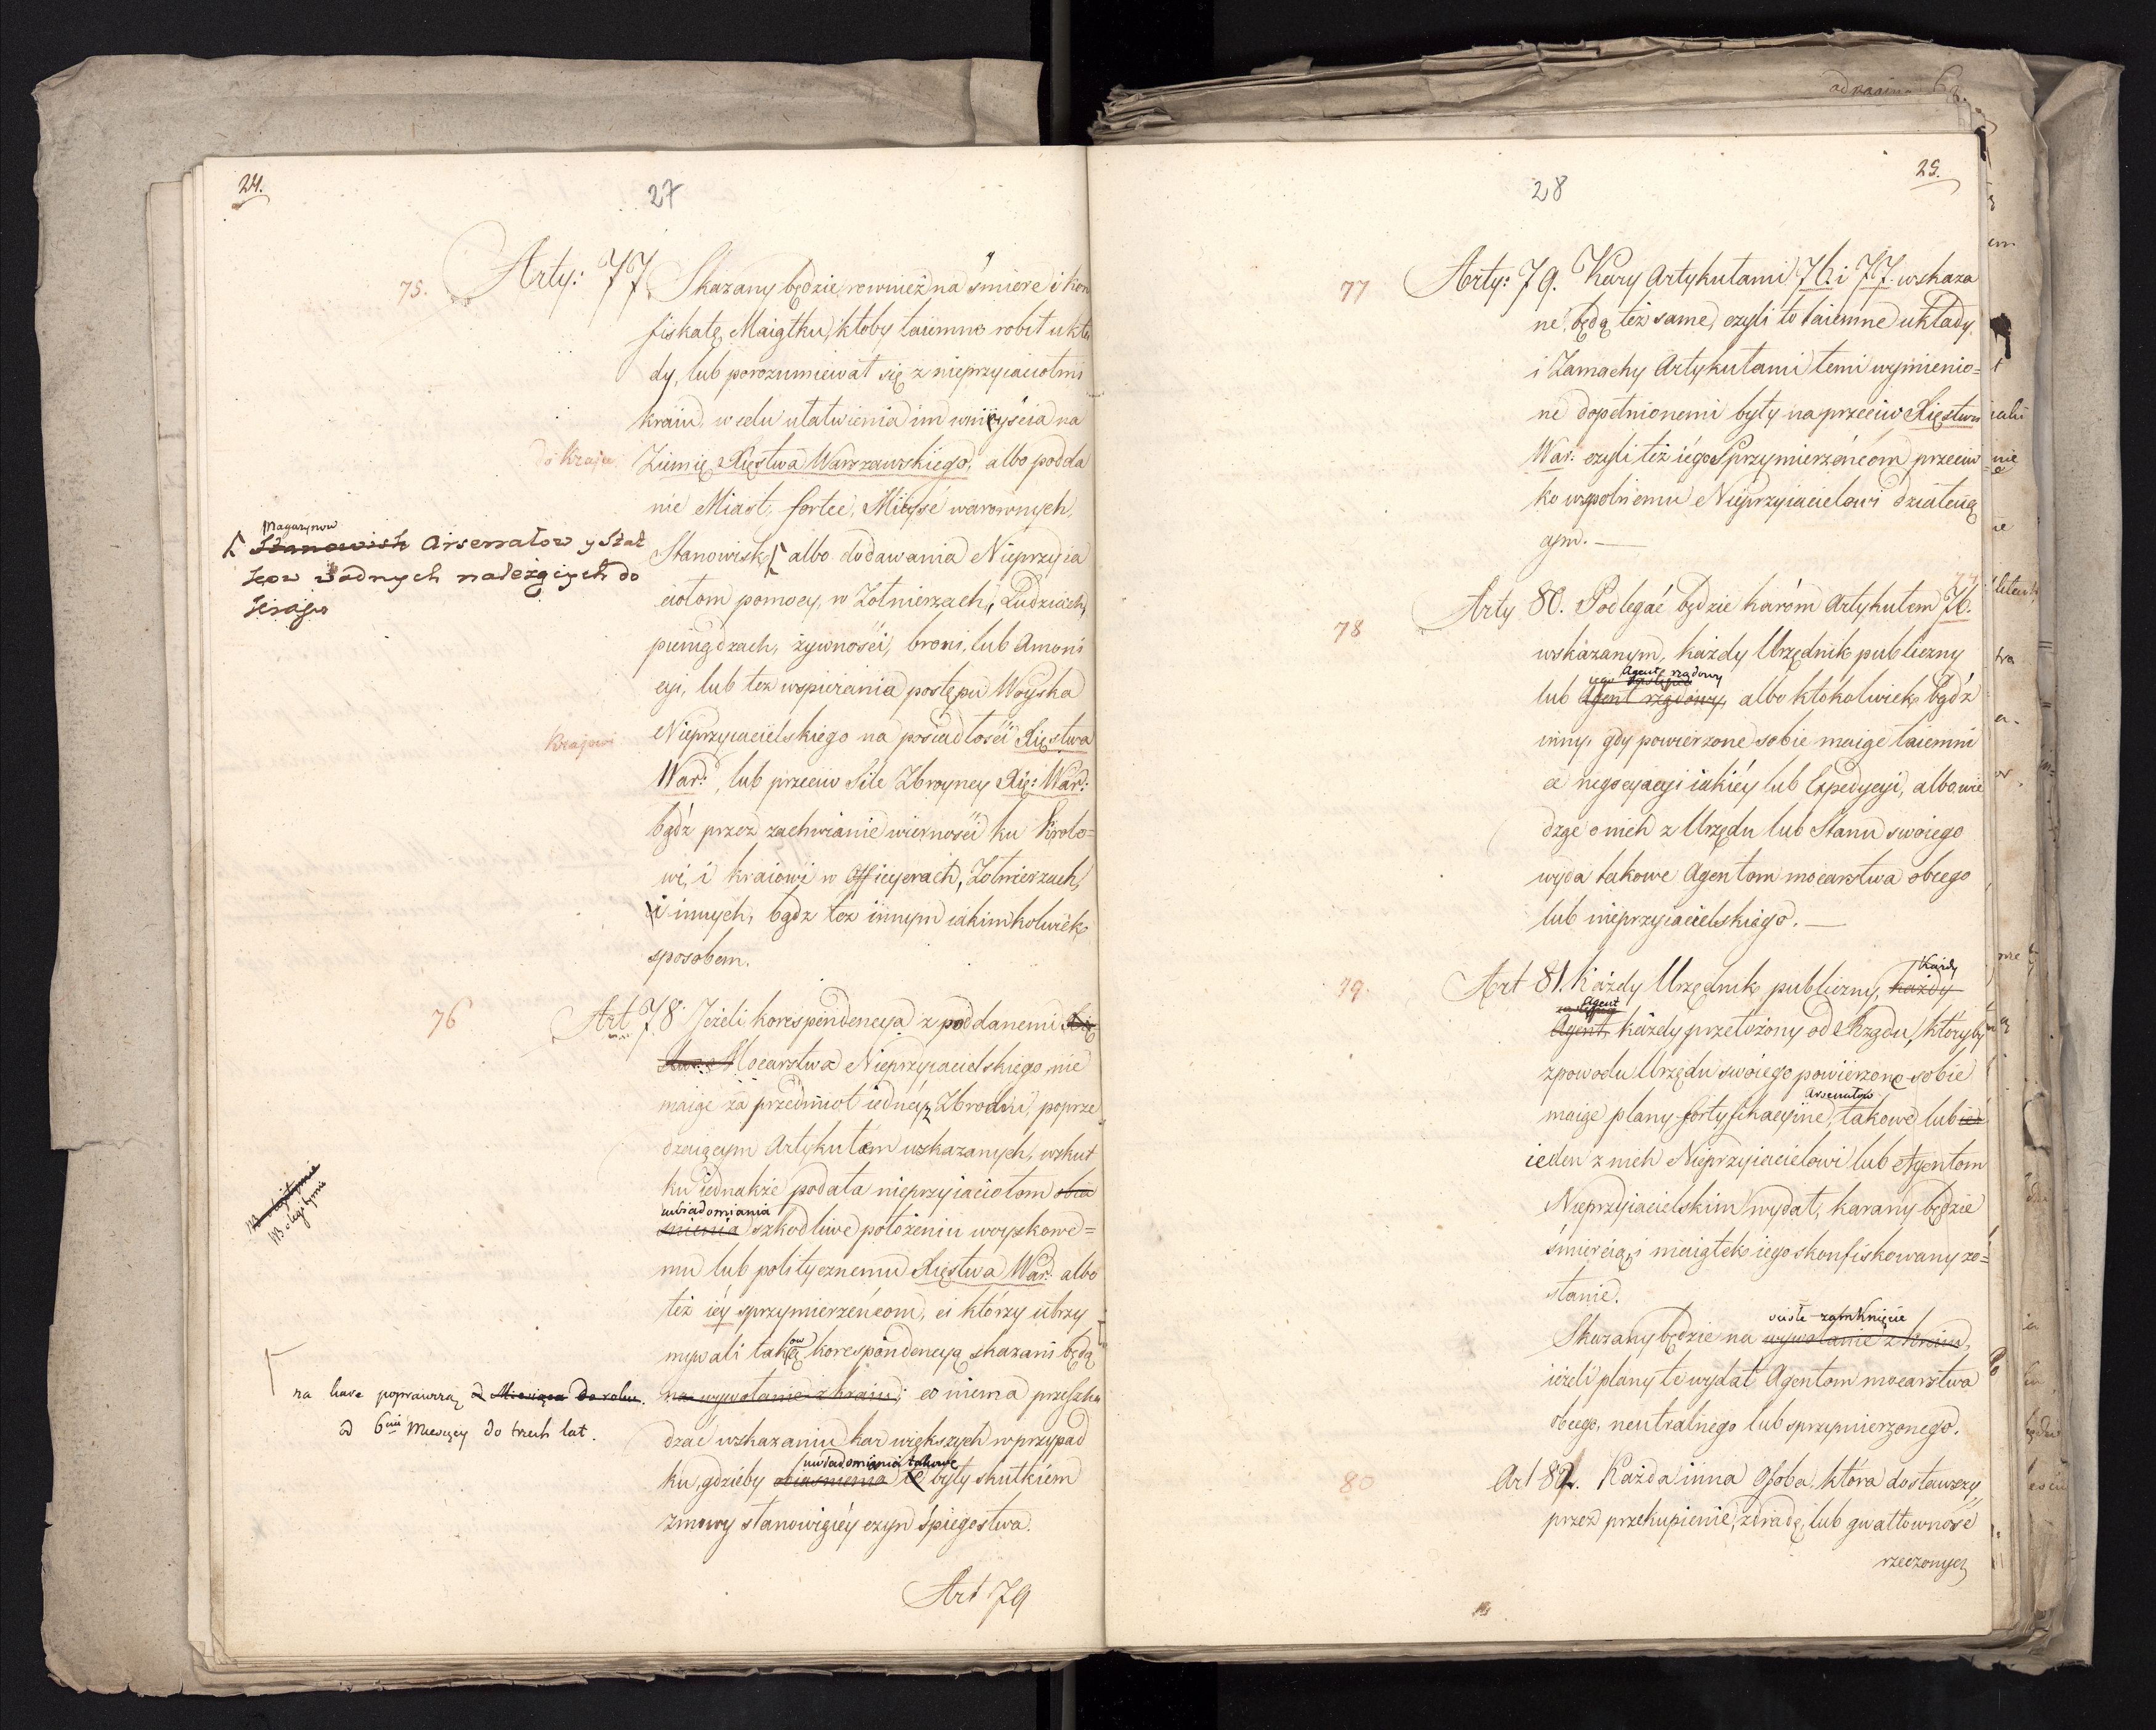 24.
27
75. Arty: 77. Skazany będzie, rownież na śmierć i kon
fiskatę Maiątku, ktoby taiemne robił ukła
dy, lub porozumiewał się z nieprzyiaciołmi
kraiu, w celu ułatwienia im wniyścia na
do kraju Ziemię Xięstwa Warszawskiego, albo podda
nie Miast, fortec, Mieysć warownych,
Stanowisk, albo dodawania Nieprzyia
Magazynow
Stanowisk Arsenałow y Stat
kow wodnych należących do
kraju
ciołom pomocy, w Żołnierzach, Ludziach,
pieniądzach, żywności, broni, lub Amoni
cyi, lub też wspierania postępu Woyska
Krajowi Nieprzyiacielskiego na posiadłości Xięstwa
War:, lub przeciw Sile Zbroyney Xię: War:
bądź przez zachwianie wierności ku Krolo=
wi, i kraiowi w Officyerach, Żołnierzach,
i innych, bądz też innym iakimkolwiek
sposobem.
76 Art 78. Jeżeli korespondencya z poddanemi Xię
stwa Mocarstwa Nieprzyiacielskiego, nie
maiąc za przedmiot iedney z Zbrodni, poprze
dzaiącym Artykułem wskazanych, wskut
ku iednakże podała nieprzyiaciołom obia
uwiadomiania
śnienia szkodliwe położeniu woyskowe=
mu lub politycznemu Xięstwa War: albo
też iéy sprzymierzeńcom, ci którzy utrzy
mywali takową korespondencyą skazani będą
na wywołanie z kraiu; co niema przeszka
na karę poprawczą od Miesiąca do roku.
od 6ciu Miesięcy do trzech lat.
dzać wskazaniu kar większych w przypad
uwiadomiania takowe
ku, gdzieby obiasnienia te były skutkiem
zmowy stanowiącéy czyn śpiegostwa.
Art 79
25.
28
77 Arty: 79. Kary Artykułami 76. i 77. wskaza
ne, będą też same, czyli to taiemne układy
i Zamachy Artykułami temi wymienio=
ne dopełnionemi były na przeciw Xięstwu
War: czyli też iégo Sprzymierzéńcom przeciw
ko wspolnemu Nieprzyiacielowi działaią
cym.
78 Arty 80. Podlegać będzie karóm Artykułem 76.
wskazanym, każdy Urzędnik publiczny
Agent rządowy
lub Agent rządowy, albo ktokolwiek bądź
inny, gdy powierzone sobie maiąc taiemni
ce negocyacyi iakiéy lub Expedycyi, albo wie
dząc o nich z Urzędu lub Stanu swoiego
wyda takowe Agentom mocarstwa obcego
lub nieprzyiacielskiégo.
79. Art 81. Każdy Urzędnik publiczny, każdy
Każdy
Agent
Agent, każdy przełożony od Rządu, któryby
z powodu Urzędu swoiego powierzone sobie
Arsenałow
maiąc plany fortyfikacyine, takowe lub ied
ieden z nich Nieprzyiacielowi lub Agentom
Nieprzyiacielskim wydał, karany będzie
śmiercią, i maiątek iego skonfiskowany zo=
stanie.
ścisłe zamknięcie
Skazany będzie na wywołanie z kraiu,
ieżeli plany te wydał Agentom mocarstwa
obcego, neutralnego lub sprzymierzonego.
80 Art 82. Każda inna Osoba, która dostawszy
przez przekupienie, zdradę, lub gwałtowność
rzeczonych